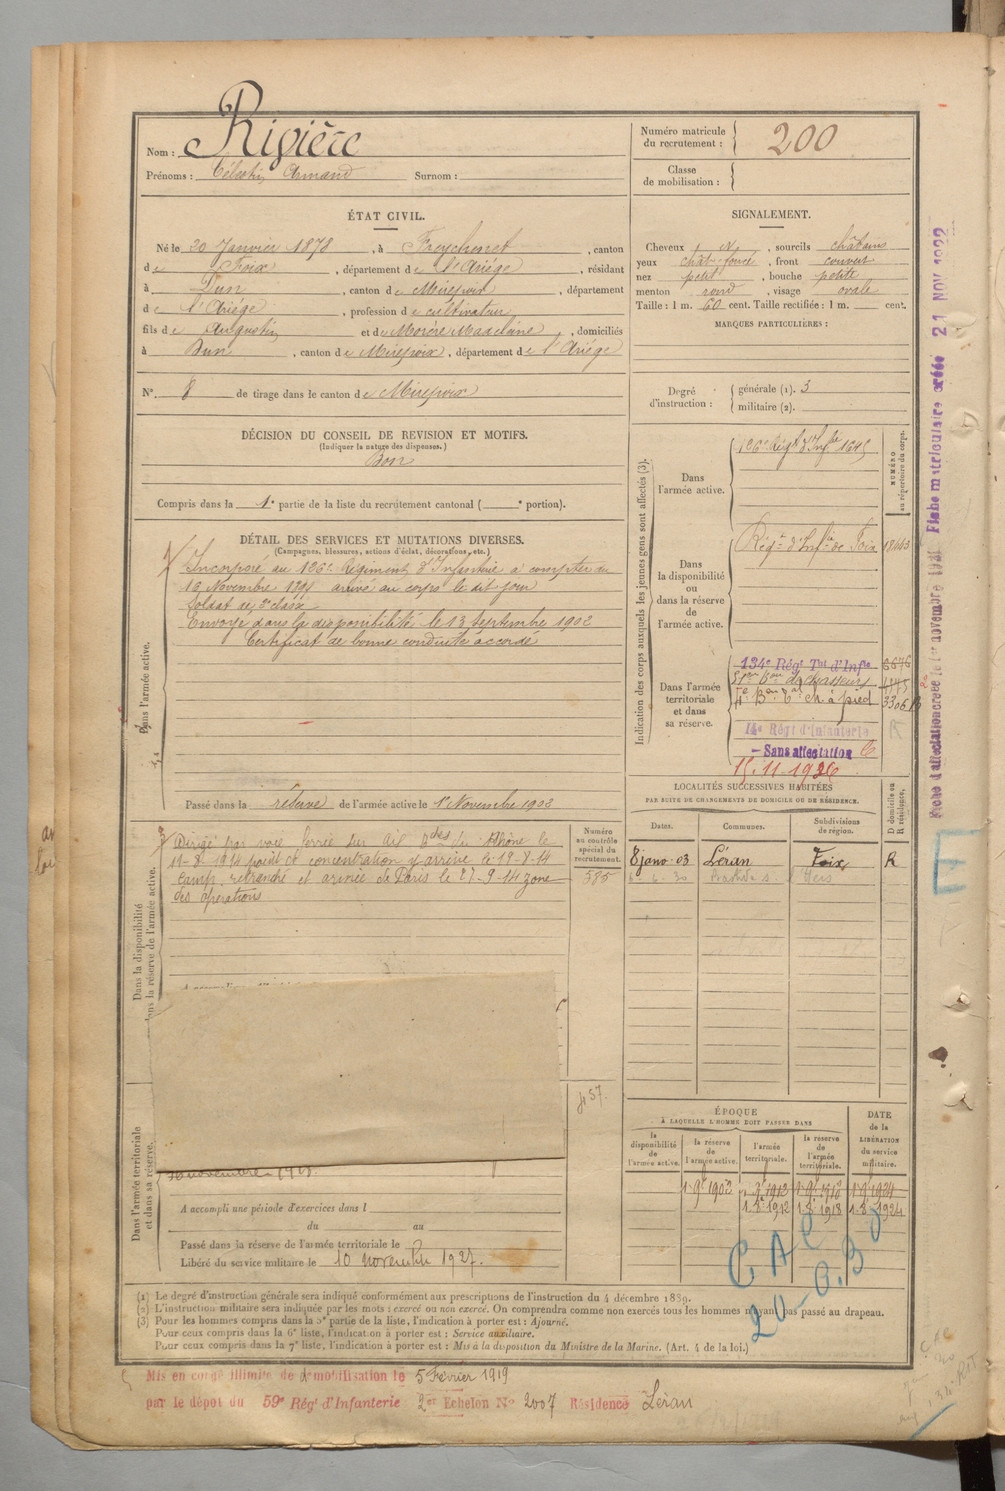 Nom : Rivière
Prénoms : Célestin Armand Surnom :
Numéro matricule du recrutement : 200
Classe de mobilisation :
ÉTAT CIVIL.
Né le 20 Janvier 1878, à Freychenet, canton
de Foix, département de l'Ariége, résidant
à Dun, canton de Mirepoix, département
de l'Ariége, profession de cultivateur
fils de Augustin et de Madelaine, domiciliés
à Dun, canton de Mirepoix, département de l'Ariége
N° 8 de tirage dans le canton de Mirepoix
SIGNALEMENT.
Cheveux N, sourcils châtains
yeux chât-foncé, front couvert
nez petit, bouche petite
menton rond, visage ovale
Taille : 1 m. 60 cent. Taille rectifiée : 1 m. cent.
MARQUES PARTICULIÈRES :
Degré d'instruction : générale (1). 3
militaire (2).
DÉCISION DU CONSEIL DE REVISION ET MOTIFS.
(Indiquer la nature des dispenses.)
Bon
Compris dans la 1e partie de la liste du recrutement cantonal ( e portion).
DÉTAIL DES SERVICES ET MUTATIONS DIVERSES.
(Campagnes, blessures, actions d'éclat, décorations, etc.)
Dans l'armée active.
Incorporé au 126e Régiment d'Infanterie à compter du
16 Novembre arrivé au corps le dit jour
Soldat de 2e classe
Envoyé dans la disponibilité le 13 Septembre 1902
Certificat de bonne conduite accordé
Passé dans la réserve de l'armée active le 1er Novembre 1902
Indication des corps auxquels les jeunes gens sont affectés (3).
NUMÉRO au répertoire du corps.
Dans l'armée active.
126e Régt d'Infie 1645
Dans la disponibilité ou dans la réserve de l'armée active.
Régt d'Infie de Foix
Dans l'armée territoriale et dans sa réserve.
134e Régt Tal d'Infie 6676
4e Bon Tal Ch à pied 3306
14e Régt d'Infanterie
- Sans affectation
15.11.1926
Fiche matriculaire créée 21 NOV 1922
LOCALITÉS SUCCESSIVES HABITÉES
PAR SUITE DE CHANGEMENTS DE DOMICILE OU DE RÉSIDENCE.
Dates. Communes. Subdivisions de région. D domicile ou R résidence.
8 janv. 03 Léran Foix R
Dans la disponibilité dans la réserve de l'armée active.
Numéro au contrôle spécial du recrutement.
585
Dirigé par voie ferrée sur du Rhône le
11-8-1914 point de concentration y arrive le 12-8-14
Camp retranché et armée de Paris le 27-9-14 zone
des opérations
Dans l'armée territoriale et dans sa réserve.
A accompli une période d'exercices dans l
du au
Passé dans la réserve de l'armée territoriale le
Libéré du service militaire le 10 novembre 1927.
ÉPOQUE
A LAQUELLE L'HOMME DOIT PASSER DANS
la disponibilité de l'armée active.
la réserve de l'armée active.
l'armée territoriale.
la reserve de l'armée territoriale.
DATE de la LIBÉRATION du service militaire.
C A C
(1) Le degré d'instruction générale sera indiqué conformément aux prescriptions de l'instruction du 4 décembre 1889.
(2) L'instruction militaire sera indiquée par les mots : exercé ou non exercé. On comprendra comme non exercés tous les hommes n'ayant pas passé au drapeau.
(3) Pour les hommes compris dans la 5e partie de la liste, l'indication à porter est : Ajourné.
Pour ceux compris dans la 6e liste, l'indication à porter est : Service auxiliaire.
Pour ceux compris dans la 7e liste, l'indication à porter est : Mis à la disposition du Ministre de la Marine. (Art. 4 de la loi.)
Mis en congé illimité de démobilisation le 5 Février 1919
par le dépôt du 59e Régt d'Infanterie 2e Echelon N° 2007 Résidence Léran